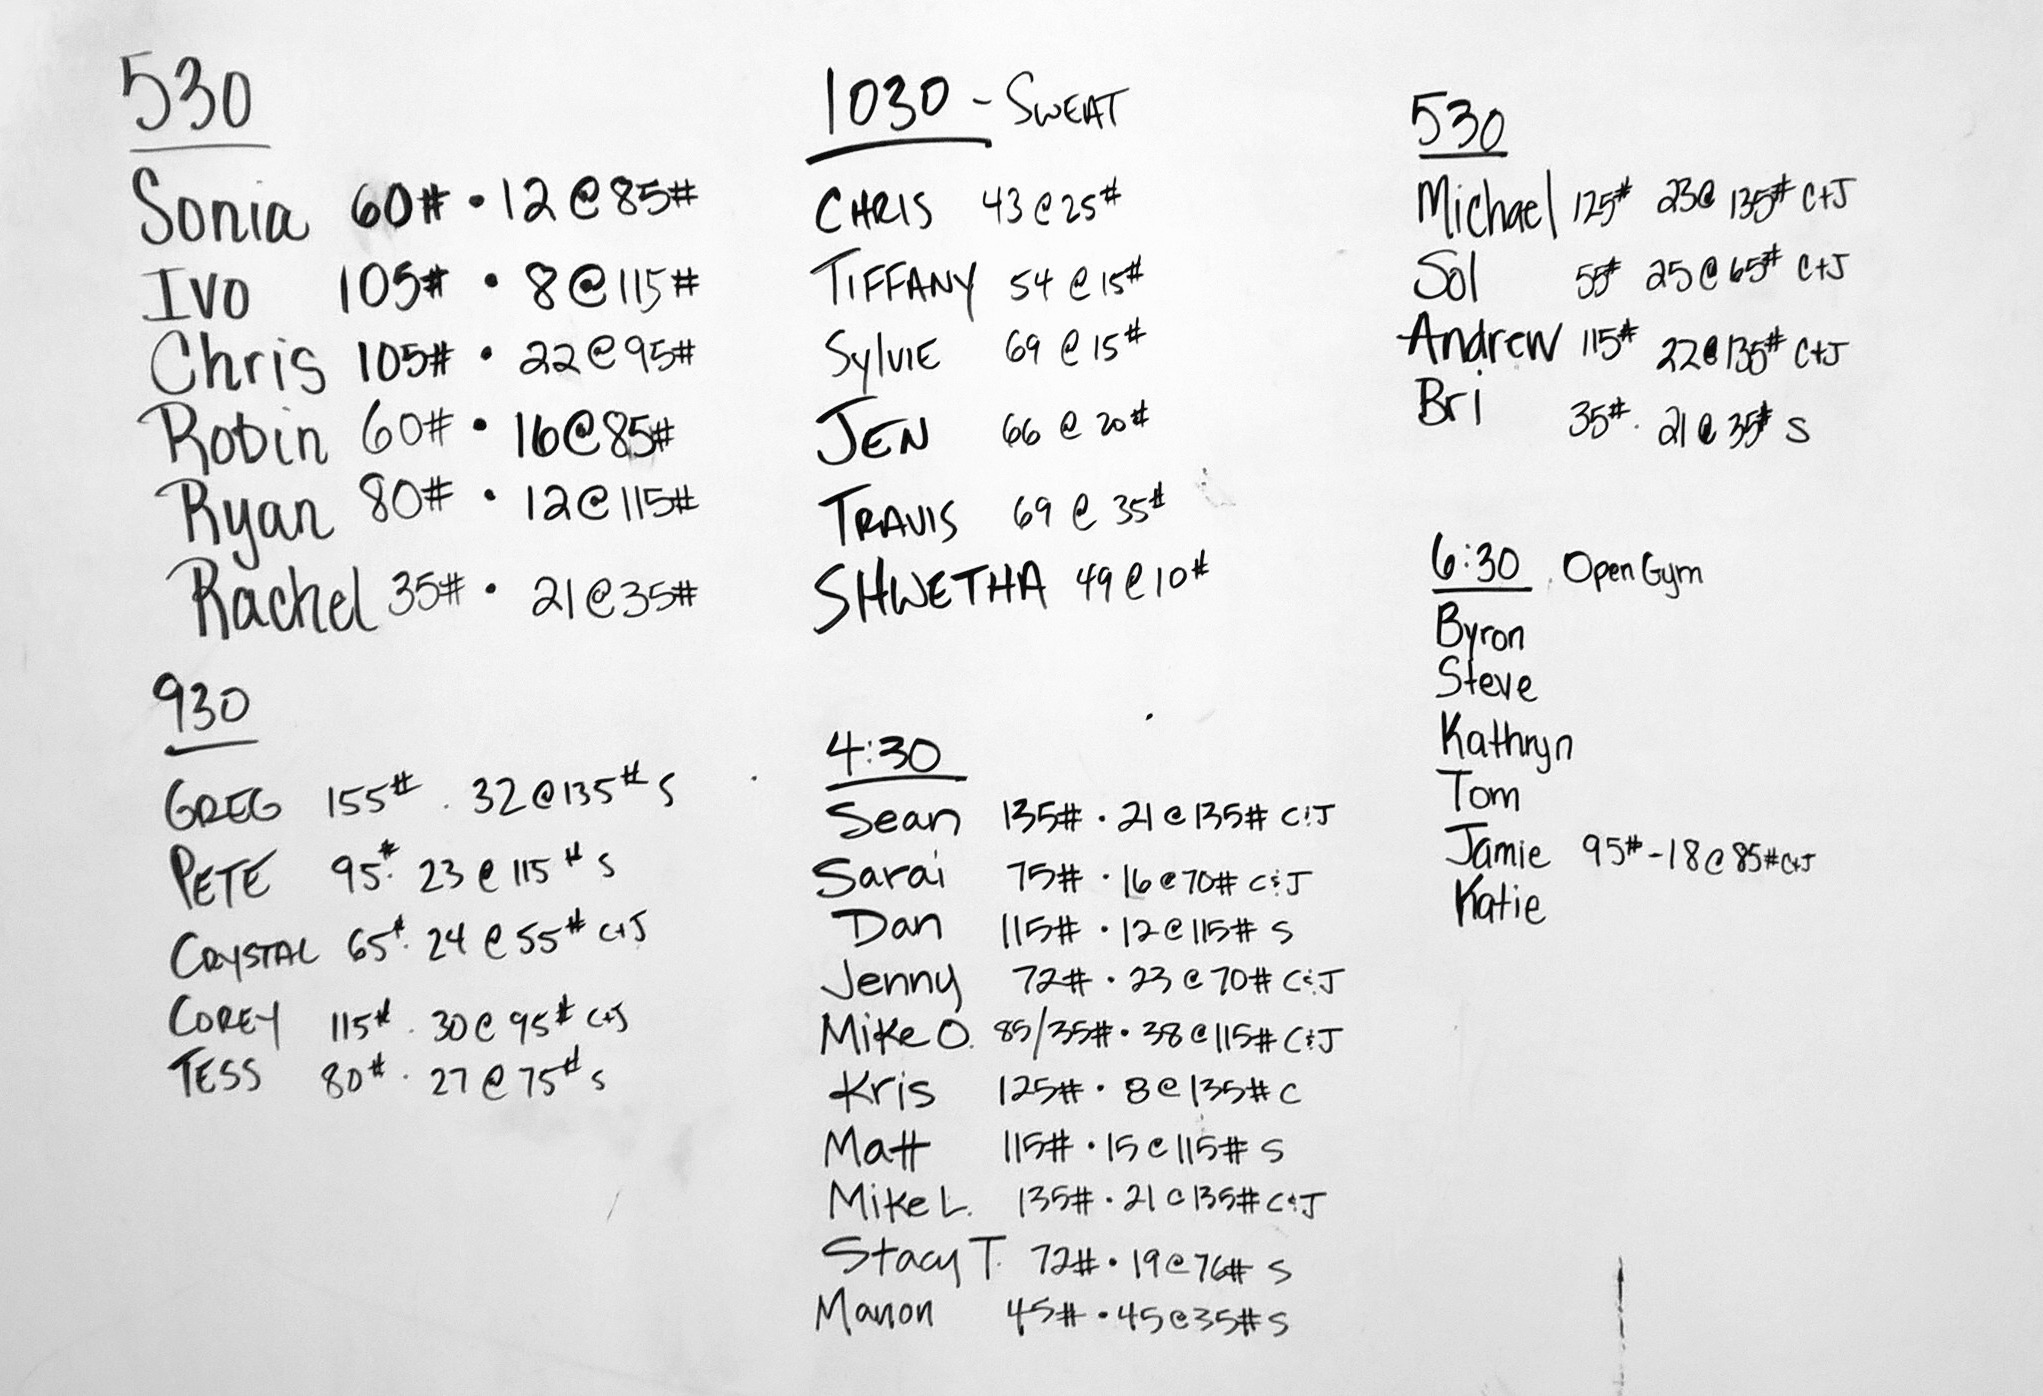 530
Sonia 60# · 12@85#
Ivo 105# · 8@115#
Chris 105# · 22@95#
Robin 60# · 16@85#
Ryan 80# · 12@115#
Rachel 35# · 21@35#
930
GREG 155# · 32@135# S
PETE 95# · 23@115# S
CRYSTAL 65# · 24@55# C+J
COREY 115# · 30@95# C+J
TESS 80# · 27@75# S
1030 - SWEAT
CHRIS 43@25#
TIFFANY 54@15#
SYLVIE 69@15#
JEN 66@20#
TRAVIS 69@35#
SHWETHA 49@10#
4:30
Sean 135# · 21@135# C&J
Sarai 75# · 16@70# C&J
Dan 115# · 12@115# S
Jenny 72# · 23@70# C&J
Mike O. 85/35# · 38@115# C&J
Kris 125# · 8@135# C
Matt 115# · 15@115# S
Mike L. 135# · 21@135# C&J
Stacy T. 72# · 19@76# S
Manon 45# · 45@35# S
530
Michael 125# 23@135# C+J
Sol 55# 25@65# C+J
Andrew 115# 22@135# C+J
Bri 35# · 21@35# S
6:30 Open Gym
Byron
Steve
Kathryn
Tom
Jamie 95# - 18@85# C+J
Katie